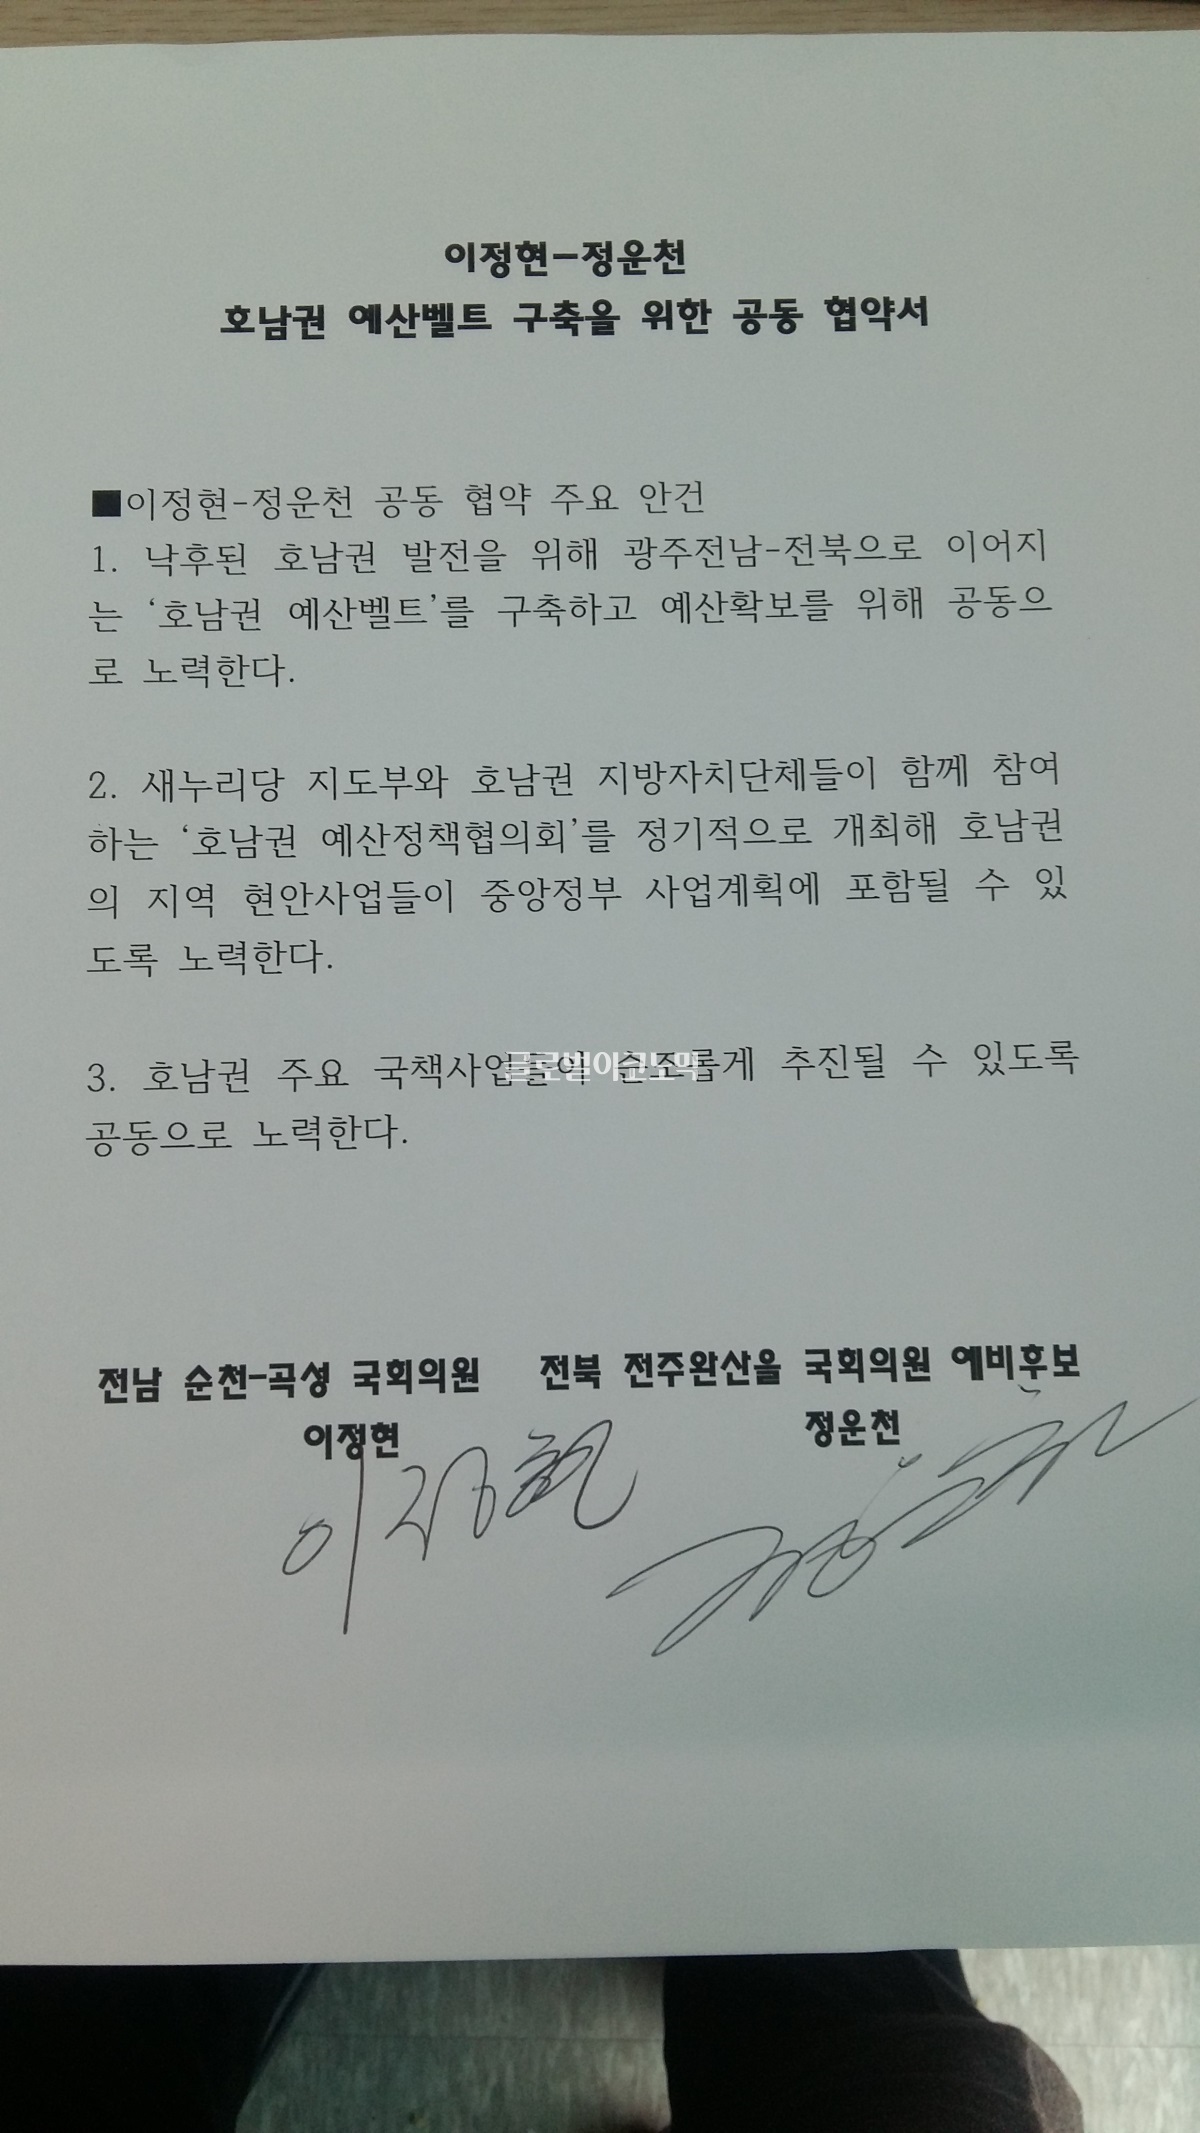 이정현-정운천
호남권 예산벨트 구축을 위한 공동 협약서
■이정현-정운천 공동 협약 주요 안건
1. 낙후된 호남권 발전을 위해 광주전남-전북으로 이어지
는 ‘호남권 예산벨트’를 구축하고 예산확보를 위해 공동으
로 노력한다.
2. 새누리당 지도부와 호남권 지방자치단체들이 함께 참여
하는 ‘호남권 예산정책협의회’를 정기적으로 개최해 호남권
의 지역 현안사업들이 중앙정부 사업계획에 포함될 수 있
도록 노력한다.
3. 호남권 주요 국책사업들이 순조롭게 추진될 수 있도록
글로벌이코노믹
공동으로 노력한다.
전남 순천-곡성 국회의원 전북 전주완산을 국회의원 예비후보
이정현 정운천
이정현